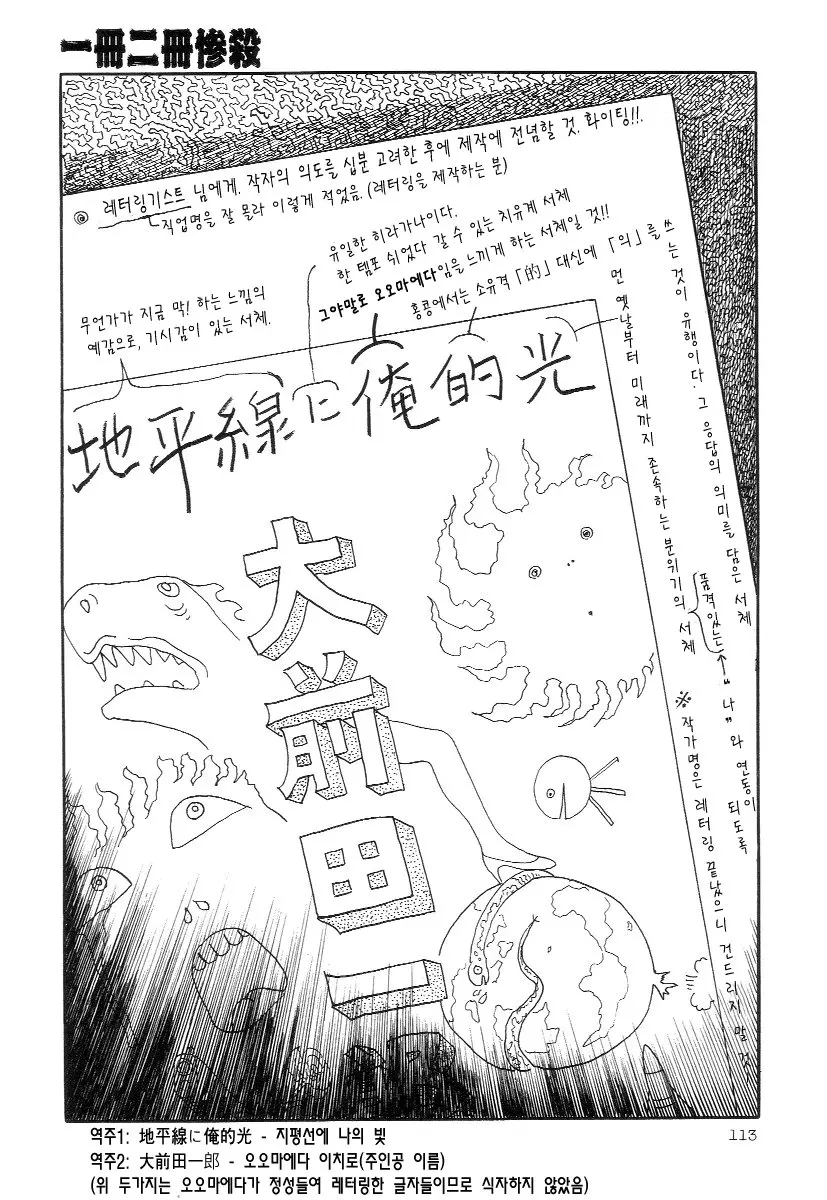 一冊二冊惨殺
◎ 레터링기스트 님에게. 작자의 의도를 십분 고려한 후에 제작에 전념할 것. 화이팅!!.
직업명을 잘 몰라 이렇게 적었음. (레터링을 제작하는 분)
무언가가 지금 막! 하는 느낌의
예감으로, 기시감이 있는 서체.
유일한 히라가나이다.
한 템포 쉬었다 갈 수 있는 치유계 서체
그야말로 오오마에다임을 느끼게 하는 서체일 것!!
홍콩에서는 소유격 「的」 대신에 「의」를 쓰는 것이 유행이다. 그 응답의 의미를 담은 서체
먼 옛날부터 미래까지 존속하는 분위기의 서체
품격있는
↑"나"와 연동이 되도록
※ 작가명은 레터링 끝났으니 건드리지 말 것
地平線に俺的光
大前田一
113
역주1: 地平線に俺的光 - 지평선에 나의 빛
역주2: 大前田一郎 - 오오마에다 이치로(주인공 이름)
(위 두가지는 오오마에다가 정성들여 레터링한 글자들이므로 식자하지 않았음)